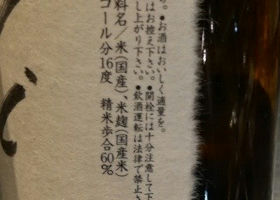 。●お酒はおいしく適量を。
はお控え下さい。●開栓には十分注意して下
し上がり下さい。●飲酒運転は法律で禁止さ
料名/米(国産)、米麹(国産米)
コール分16度 精米歩合60%